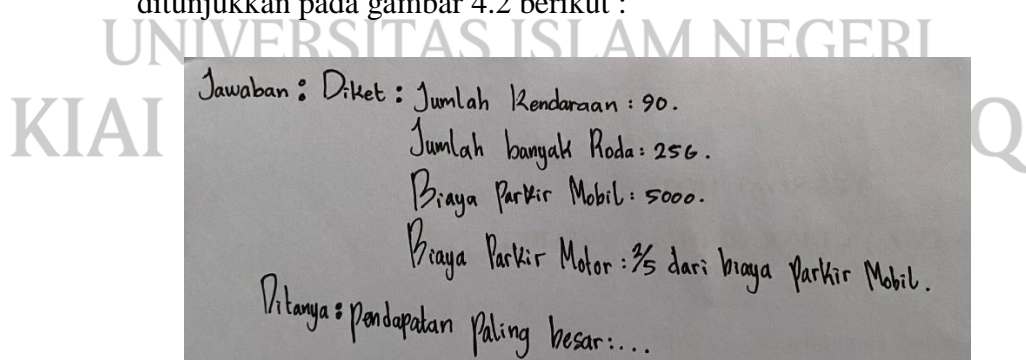 ditunjukkan pada gambar 4.2 berikut :
UNIVERSITAS ISLAM NEGERI
KIAI
Q
Jawaban : Diket : Jumlah Kendaraan : 90.
Jumlah banyak Roda : 256.
Biaya Parkir Mobil : 5000.
Biaya Parkir Motor : 2/5 dari biaya parkir Mobil.
Ditanya : pendapatan paling besar : ...